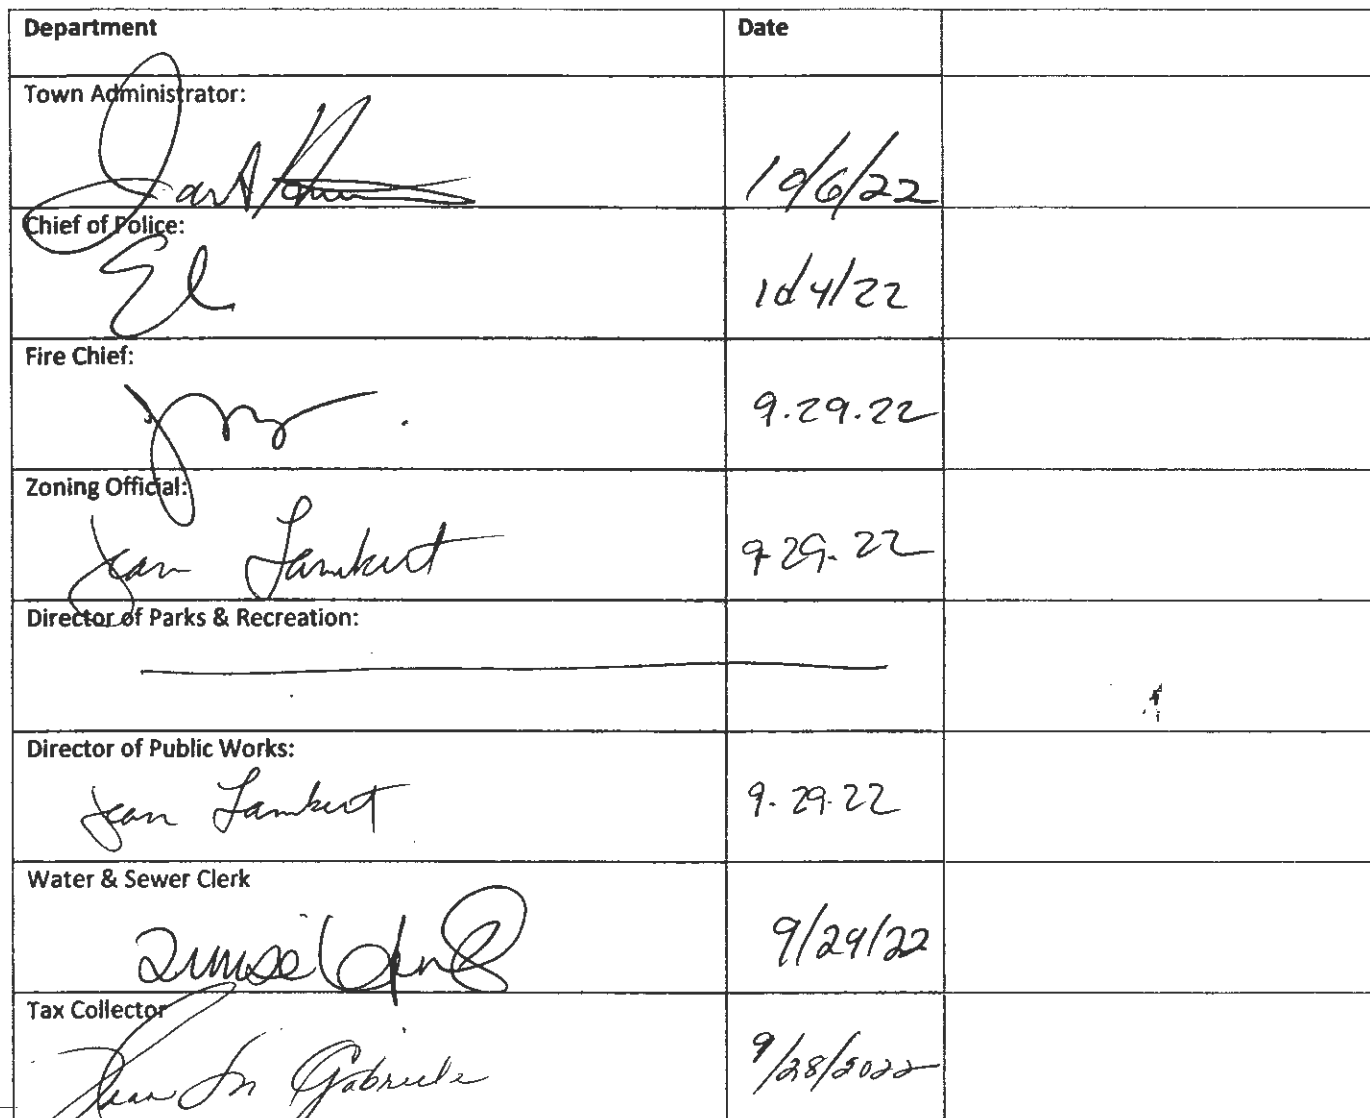 Department Date
Town Administrator:
10/6/22
Chief of Police:
10/4/22
Fire Chief:
9.29.22
Zoning Official:
Jean Lambert 9.29.22
Director of Parks & Recreation:
Director of Public Works:
Jean Lambert 9.29.22
Water & Sewer Clerk
9/29/22
Tax Collector
Gabriele 9/28/2022